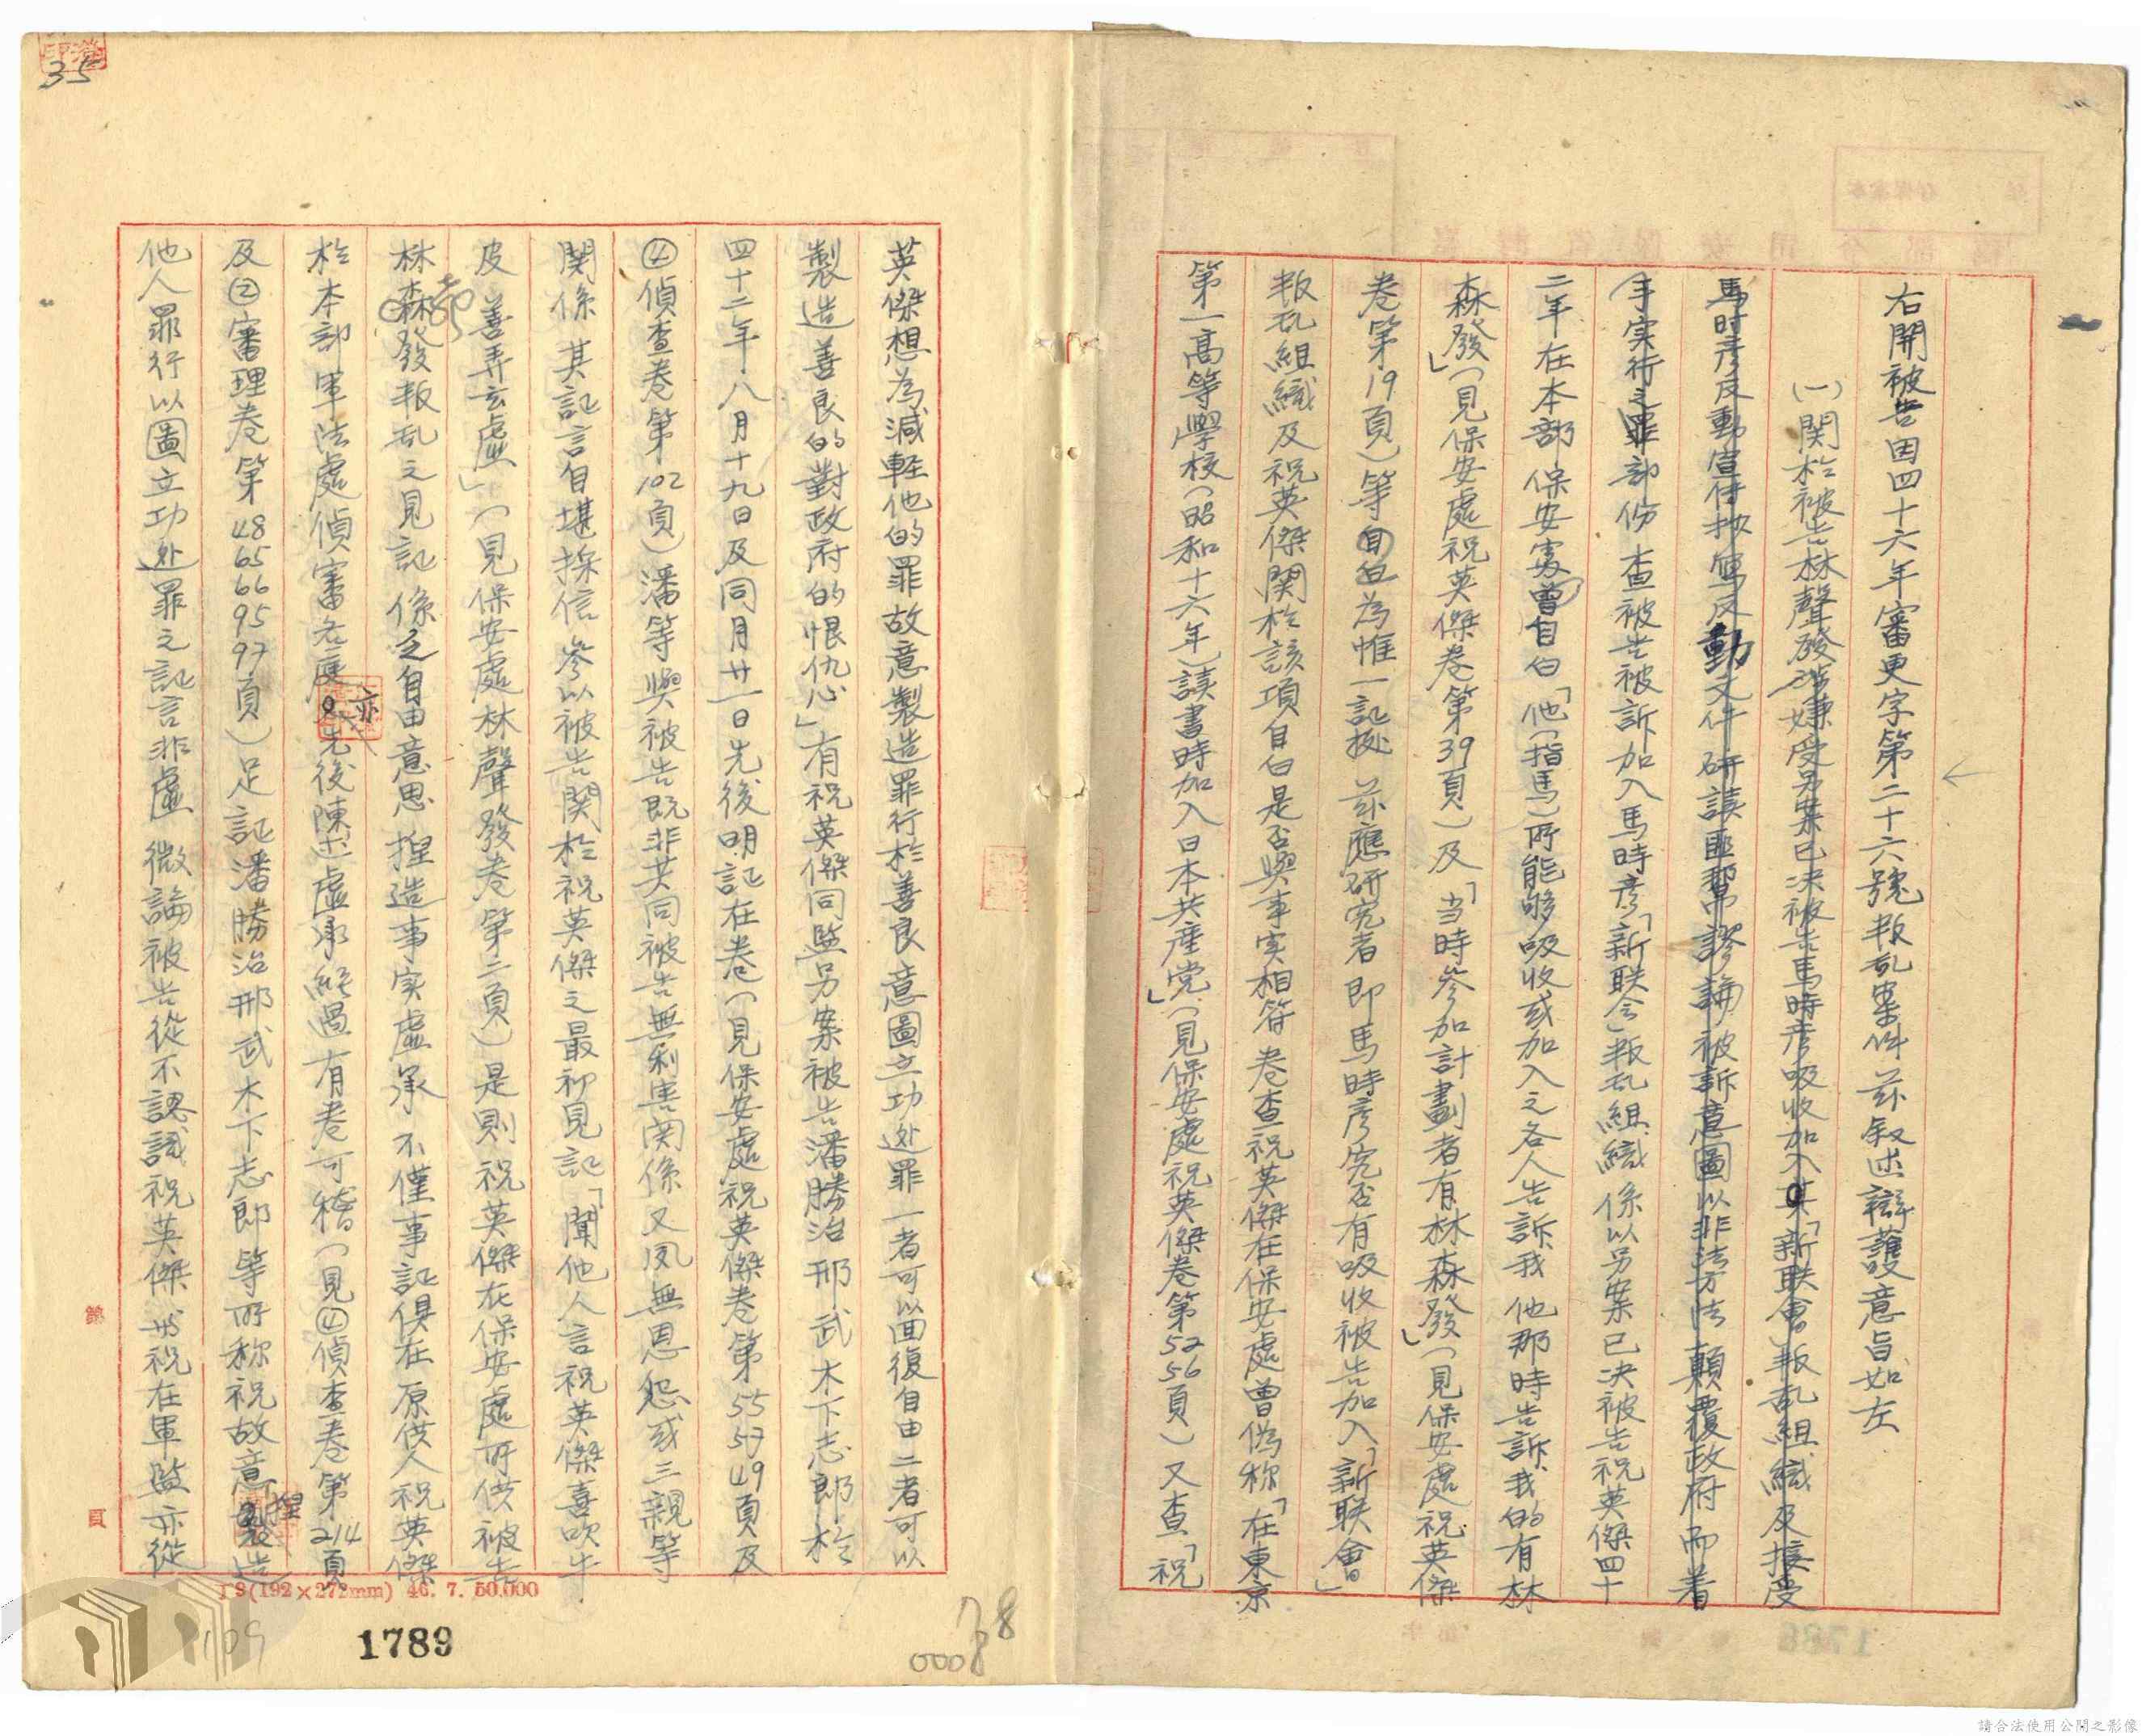 右開被告因四十六年審更字第二十六號叛乱案件茲叙述辯護意旨如左
(一)関於被告林聲發涉嫌受另案已决被告馬時彥吸收加入其「新联會」叛乱組織及接受
馬時彥反動宣傳抄寫反動文件研讀匪幫謬論被訴意圖以非法方法顛覆政府而着
手实行之罪部份查被告被訴加入馬時彥「新联会」叛乱組織係以另案已决被告祝英傑四十
二年在本部保安處曾自白「他(指馬)所能够吸收或加入之各人告訴我他那時告訴我的有林
森發」(見保安處祝英傑卷第39頁)及「当時參加計劃者有林森發」(見保安處祝英傑
卷第19頁)等自白為惟一証據茲應研究者即馬時彥究否有吸收被告加入「新联會」
叛乱組織及祝英傑関於該項自白是否與事实相符卷查祝英傑在保安處曾偽称「在東京
第一高等學校(昭和十六年)讀書時加入日本共產党」(見保安處祝英傑卷第52 56頁)又查「祝
英傑想為減輕他的罪故意製造罪行於善良意圖立功处罪一者可以回復自由二者可以
製造善良的對政府的恨仇心」有祝英傑同監另案被告潘勝治邢武木下志郎於
四十二年八月十九日及同月廿一日先後明証在卷(見保安處祝英傑卷第55 57 49頁及
④偵查卷第102頁)潘等與被告既非共同被告無利害関係又夙無恩怨或三親等
関係其証言自堪採信參以被告関於祝英傑之最初見証「聞他人言祝英傑喜吹牛
皮善弄玄虛」(見保安處林聲發卷第二頁)是則祝英傑在保安處所供被告
林森發叛乱之見証係之自由意思捏造事实虛承不僅事証俱在原供人祝英傑
於本部軍法處偵審各庭亦先後陳述虛承經過有卷可稽(見④偵查卷第214頁
及②審理卷第48 65 66 95 97頁)足証潘勝治邢武木下志郎等所称祝故意捏造
他人罪行以圖立功处罪之証言非虛微論被告從不認識祝英傑, 祝在軍監亦從
第 頁
T8(192×272mm) 46. 7. 50,000
1789
35
請合法使用公開之影像